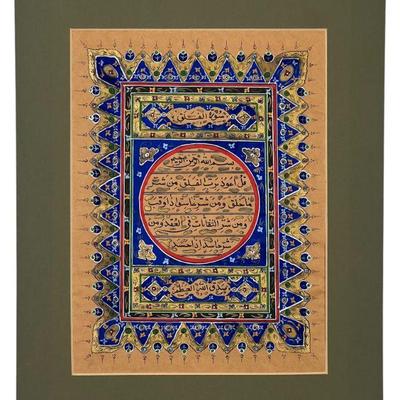 سورة الفلق
بسم الله الرحمن الرحيم
قل أعوذ برب الفلق من شر
ما خلق ومن شر غاسق إذا وقب
ومن شر النفاثات في العقد ومن
شر حاسد إذا حسد
صدق الله العظيم